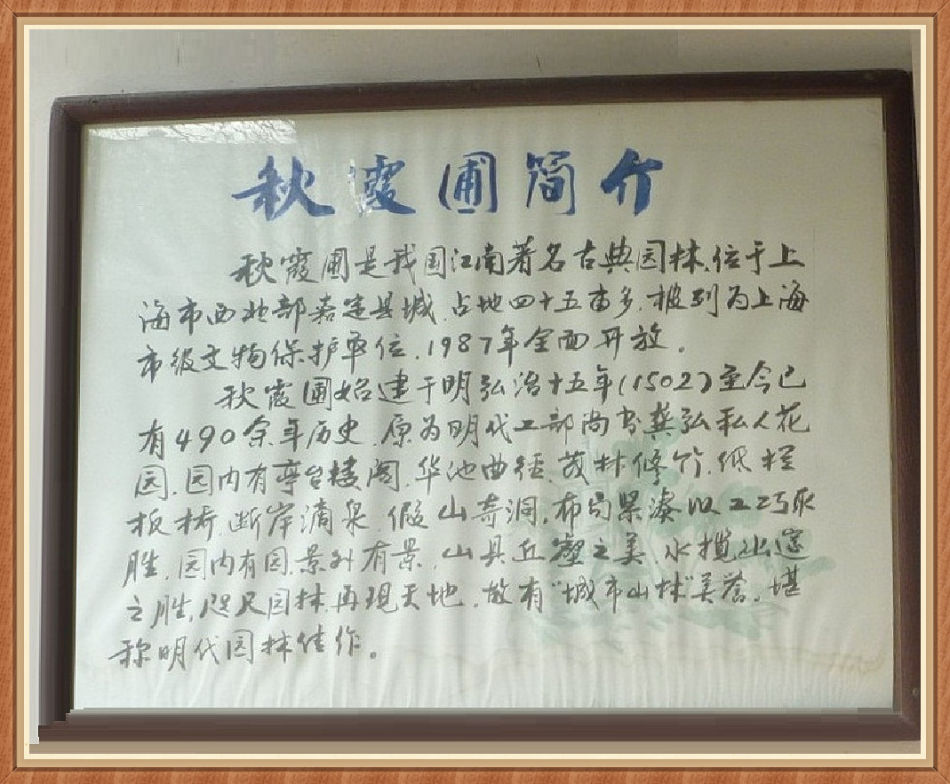 秋霞圃简介
秋霞圃是我国江南著名古典园林,位于上
海市西北部嘉定县城,占地四十五亩多,被列为上海
市级文物保护单位,1987年全面开放。
秋霞圃始建于明弘治十五年(1502)至今已
有490余年历史,原为明代工部尚书龚弘私人花
园,园内有亭台楼阁,华池曲径,茂林修竹,低栏
板桥,断岸滴泉,假山奇洞,布局紧凑以工巧取
胜,园内有园,景外有景,山具丘壑之美,水揽幽邃
之胜,咫尺园林,再现天地,故有“城市山林”美誉,堪
称明代园林佳作。